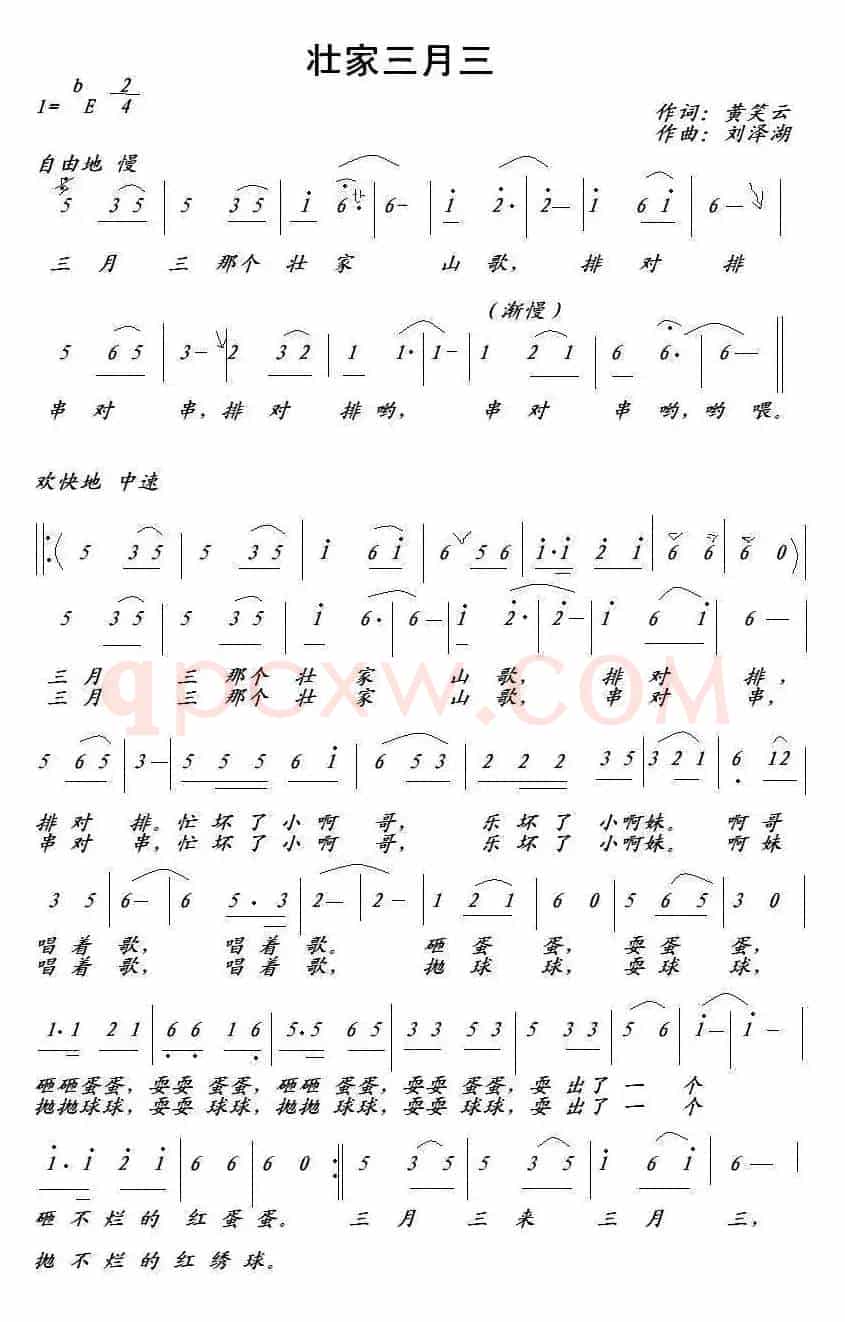 壮家三月三
1= bE 2/4
作词：黄笑云
作曲：刘泽湖
自由地 慢
5 3 5 | 5 3 5 | i 6· | 6— | i 2· | 2— | i 6 i | 6—
三 月 三 那个 壮 家 山 歌， 排 对 排
（渐慢）
5 6 5 | 3— | 2 3 2 | 1 1· | 1— | 1 2 1 | 6 6· | 6— ‖
串 对 串，排 对 排 哟， 串 对 串 哟，哟 喂。
欢快地 中速
‖:（5 3 5 | 5 3 5 | i 6 i | 6 5 6 | i·i 2 i | 6 6 | 6 0）
5 3 5 | 5 3 5 | i 6· | 6— | i 2· | 2— | i 6 i | 6—
三月 三 那个 壮 家 山 歌， 排 对 排，
三月 三 那个 壮 家 山 歌， 串 对 串，
qpcxw.COM
5 6 5 | 3— | 5 5 5 6 i | 6 5 3 | 2 2 2 3 5 | 3 2 1 | 6 12
排 对 排。忙 坏 了 小 啊 哥， 乐 坏 了 小啊妹。 啊 哥
串 对 串，忙 坏 了 小 啊 哥， 乐 坏 了 小啊妹。 啊 妹
3 5 | 6— | 6 5·3 | 2— | 2— | 1 2 1 | 6 0 | 5 6 5 | 3 0
唱 着 歌， 唱 着 歌。 砸 蛋 蛋， 耍 蛋 蛋，
唱 着 歌， 唱 着 歌， 抛 球 球， 耍 球 球，
1·1 2 1 | 6 6 1 6 | 5·5 6 5 | 3 3 5 3 | 2 3 | 5 6 | i— | i—
砸砸蛋蛋，耍耍 蛋蛋，砸砸 蛋蛋，耍耍 蛋蛋，耍 出 了 一 个
抛抛球球，耍耍 球球，抛抛 球球，耍耍 球球，耍 出 了 一 个
i·i 2 i | 6 6 | 6 0 :‖ 5 3 5 | 5 3 5 | i 6 i | 6—
砸 不 烂 的 红 蛋 蛋。 三 月 三 来 三 月 三，
抛 不 烂 的 红 绣 球。